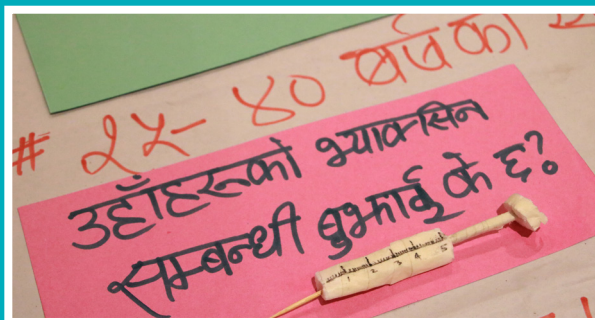 # २५- ४० बर्षको
उहाँहरूको भ्याक्सिन
सम्बन्धी बुझाई के छ?
1 2 3 4 5